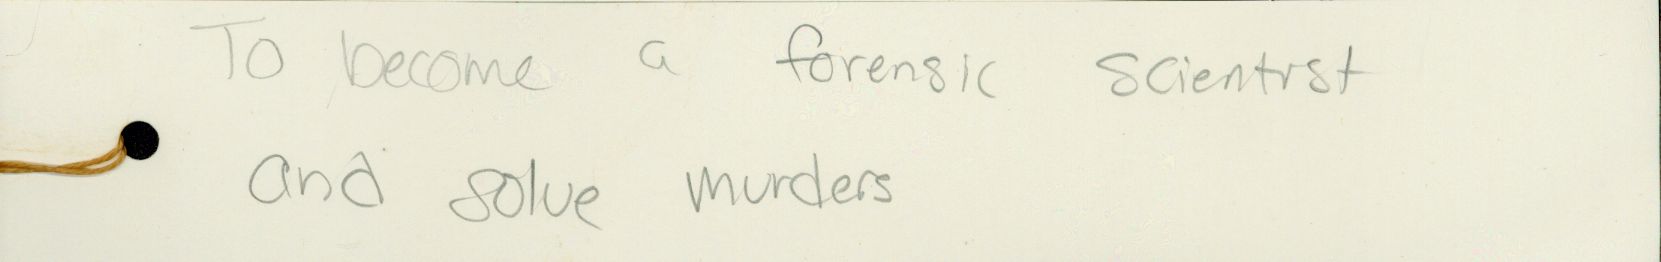 To become a forensic scientist
and solve murders